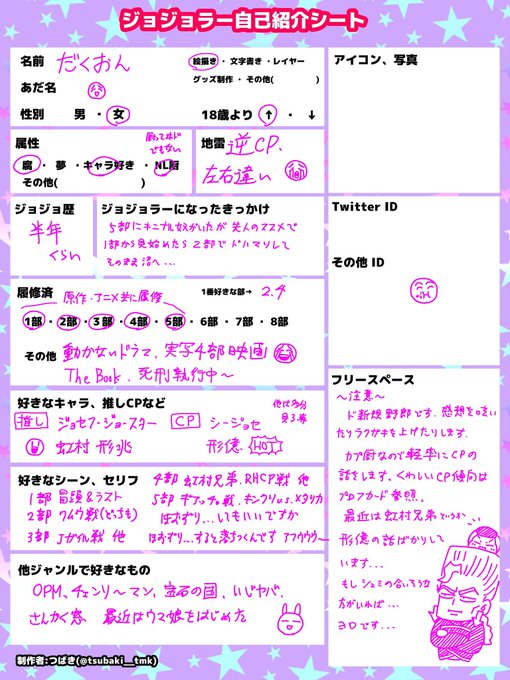 ジョジョラー自己紹介シート
名前 だくおん
あだ名
性別 男 ・ 女
絵描き ・ 文字書き ・ レイヤー
グッズ制作 ・ その他( )
18歳より ↑ ・ ↓
属性
厨ってほど
でもない
腐 ・ 夢 ・ キャラ好き ・ NL厨
その他( )
地雷 逆CP、
左右違い
ジョジョ歴
半年
くらい
ジョジョラーになったきっかけ
5部に
友人のススメで
1部から見始めたら2部でドハマりして
そのまま沼へ…
履修済 原作・アニメ共に履修
1番好きな部→ 2.4
1部 ・ 2部 ・ 3部 ・ 4部 ・ 5部 ・ 6部 ・ 7部 ・ 8部
その他 動かないドラマ、実写4部映画
The Book、死刑執行中〜
好きなキャラ、推しCPなど
推し ジョセフ・ジョースター
虹村 形兆
CP シージョセ
形億 HOT
好きなシーン、セリフ
1部 冒頭&ラスト
2部 ワムウ戦(どっちも)
3部 Jガイル戦 他
4部 虹村兄弟、RHCP戦 他
5部 ギアッチョ戦、キンクリv.s.メタリカ
ほおずり…いもいいですか
ほおずり…すると落ちつくんです アウウウ〜
他ジャンルで好きなもの
OPM、チェンソーマン、宝石の国、いじヤバ、
さんかく窓 最近はウマ娘をはじめた
アイコン、写真
Twitter ID
その他 ID
フリースペース
〜注意〜
ド新規野郎です。感想を呟い
たりラクガキを上げたりします。
カプ厨なので軽率にCPの
話をします、くわしいCP傾向は
プロフカード参照。
最近は虹村兄弟というか…
形億の話ばかりして
います…
もしシュミの合いそうな
方がいれば…
ヨロです…
制作者:つばき(@tsubaki__tmk)